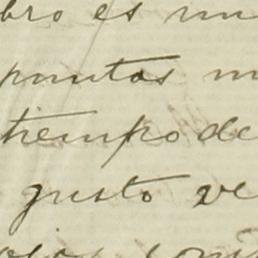 bro es un
puntos m
tiempo de
gusto ve